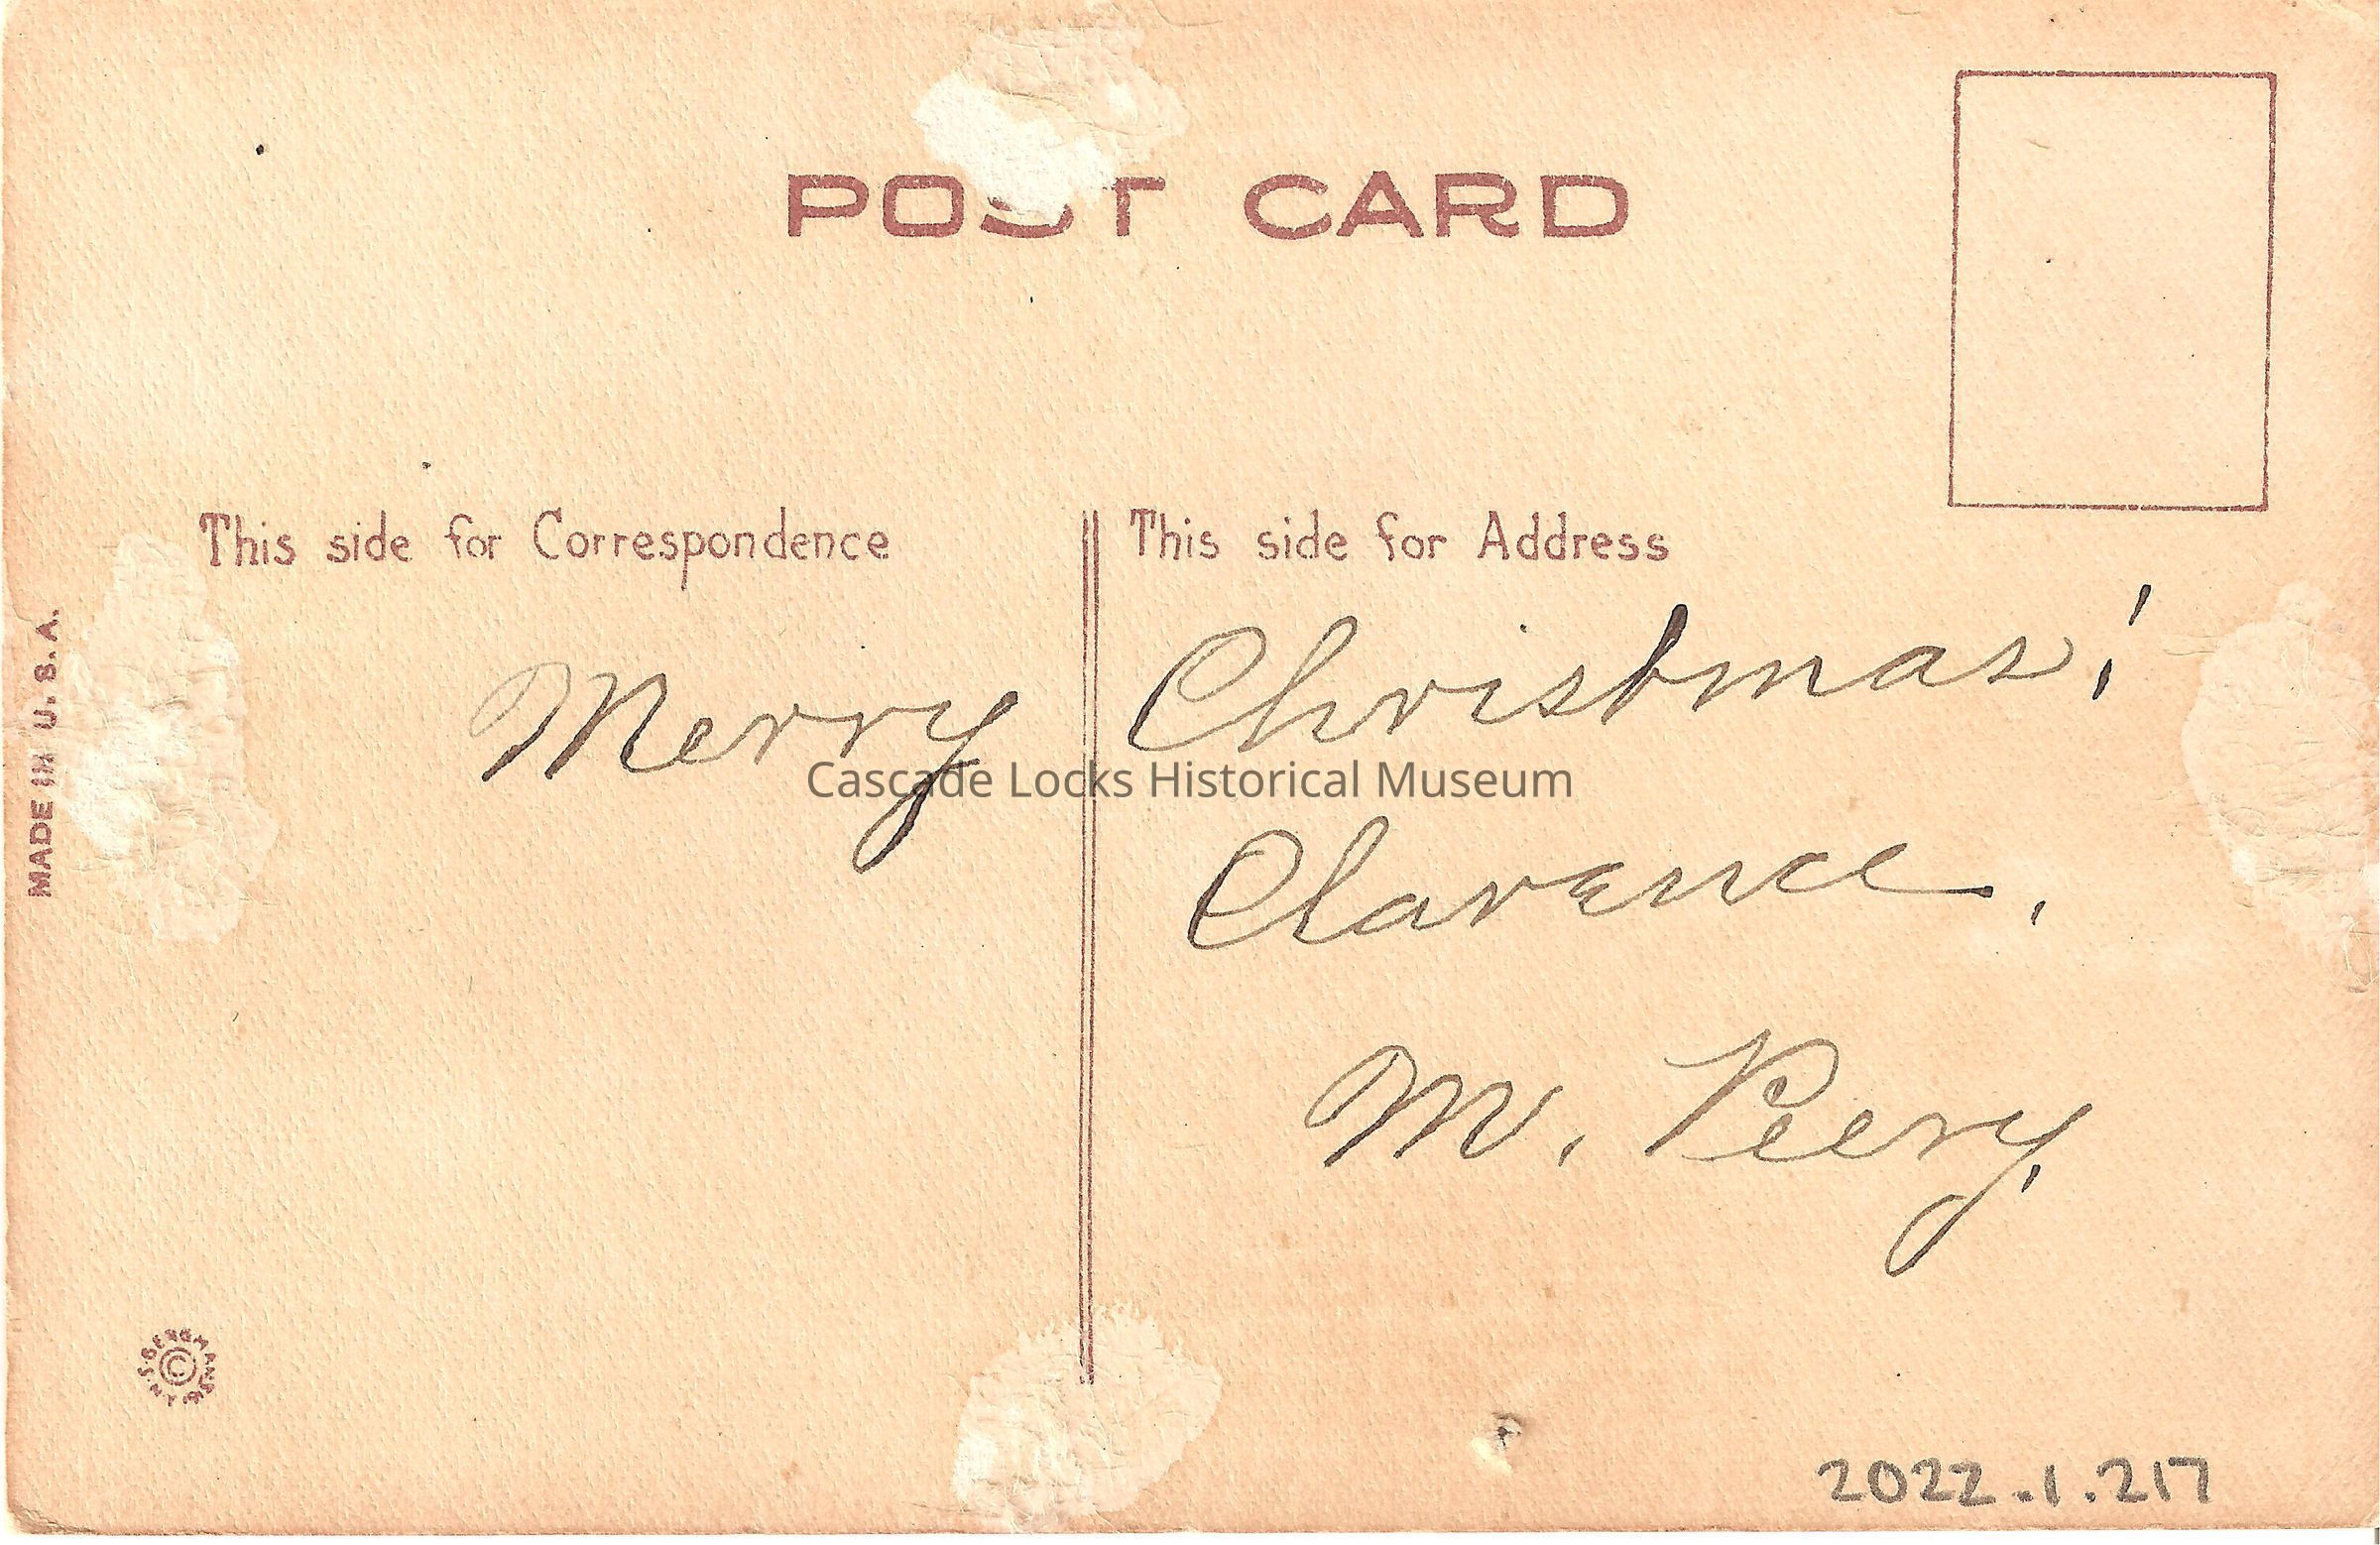 POST CARD
This side for Correspondence
This side for Address
MADE IN U. S. A.
Merry Christmas!
Cascade Locks Historical Museum
Clarence.
M. Peery.
S. BERGMAN N.Y.
©
2022.1.217